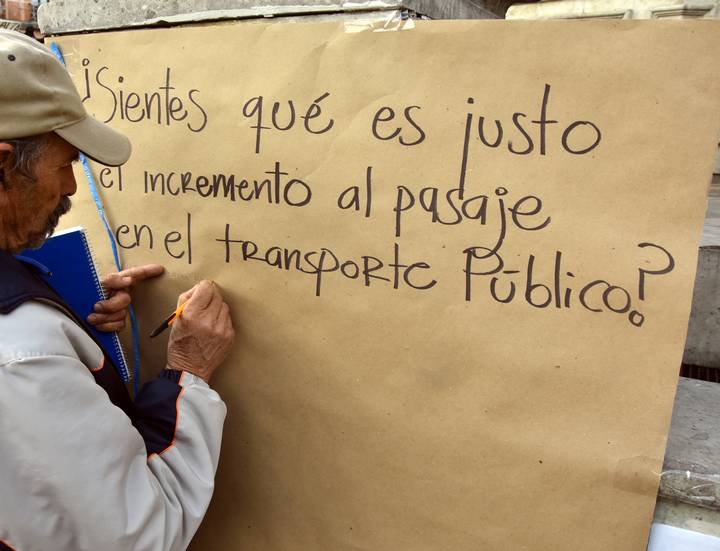 ¡Sientes qué es justo
el incremento al pasaje
en el transporte Público?